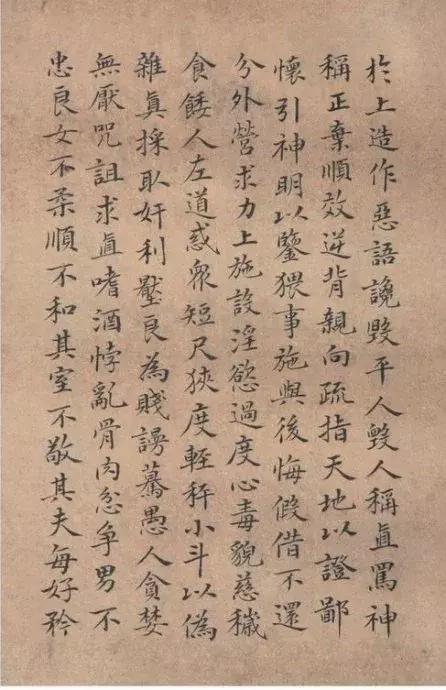 於上造作惡語讒毀平人毀人稱直罵神
稱正棄順效逆背親向疏指天地以證鄙
懷引神明以鑒猥事施與後悔假借不還
分外營求力上施設淫慾過度心毒貌慈穢
食餧人左道惑衆短尺狹度輕秤小斗以偽
雜真採取奸利壓良為賤謾驀愚人貪婪
無厭咒詛求直嗜酒悖亂骨肉忿爭男不
忠良女不柔順不和其室不敬其夫每好矜